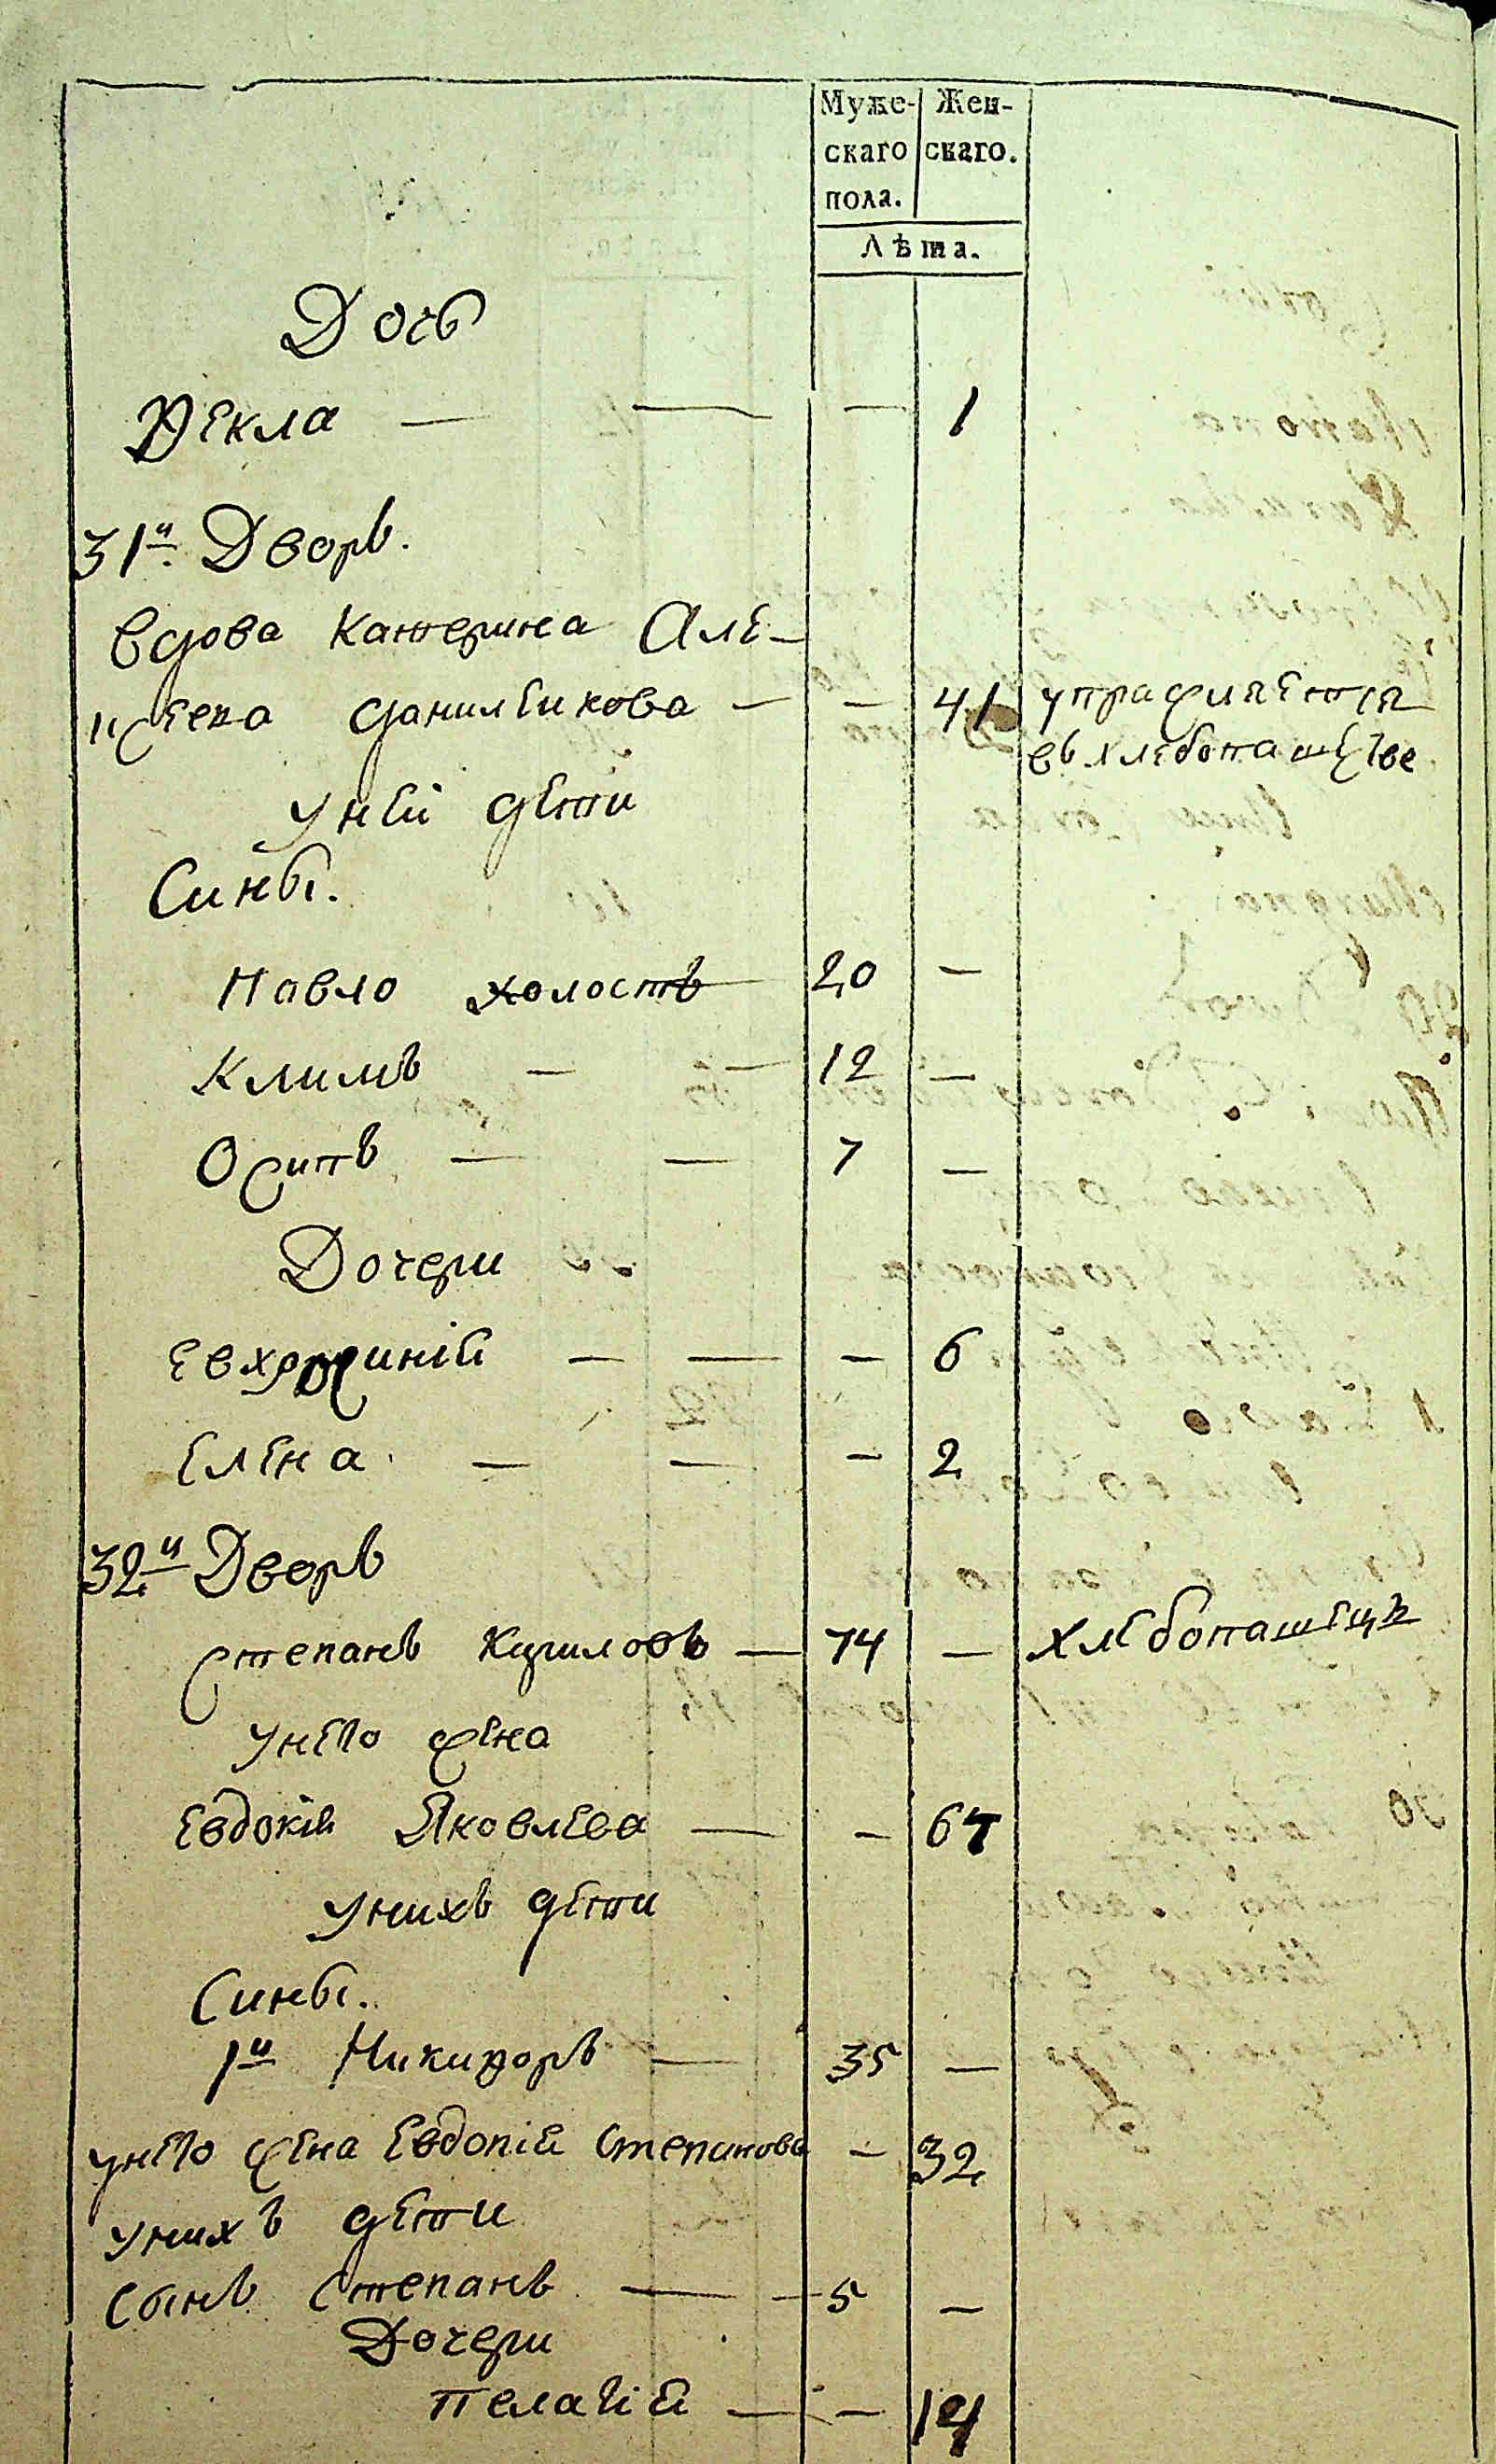 Муже- Жен-
скаго скаго.
пола.
Лѣта.
Дочь
Ѳекла — — — 1
31й Дворъ.
Вдова Катерина Але-
ксѣева Даниленкова — — 41 упражняется
въ хлебопашестве
У ней дети
Сины.
Павло холостъ 20 —
Климъ — — 12 —
Осипъ — — 7 —
Дочери
Евхросинія — — — 6
Елена — — — 2
32й Дворъ
Степанъ Кириловъ — 74 — хлебопашецъ
У него жена
Евдокія Яковлева — — 67
У нихъ дети
Сины.
1й Никифоръ — 35 —
У него жена Евдокія Степанова — 32
У нихъ дети
Сынъ Степанъ — — 5 —
Дочери
Пелагія — — 14